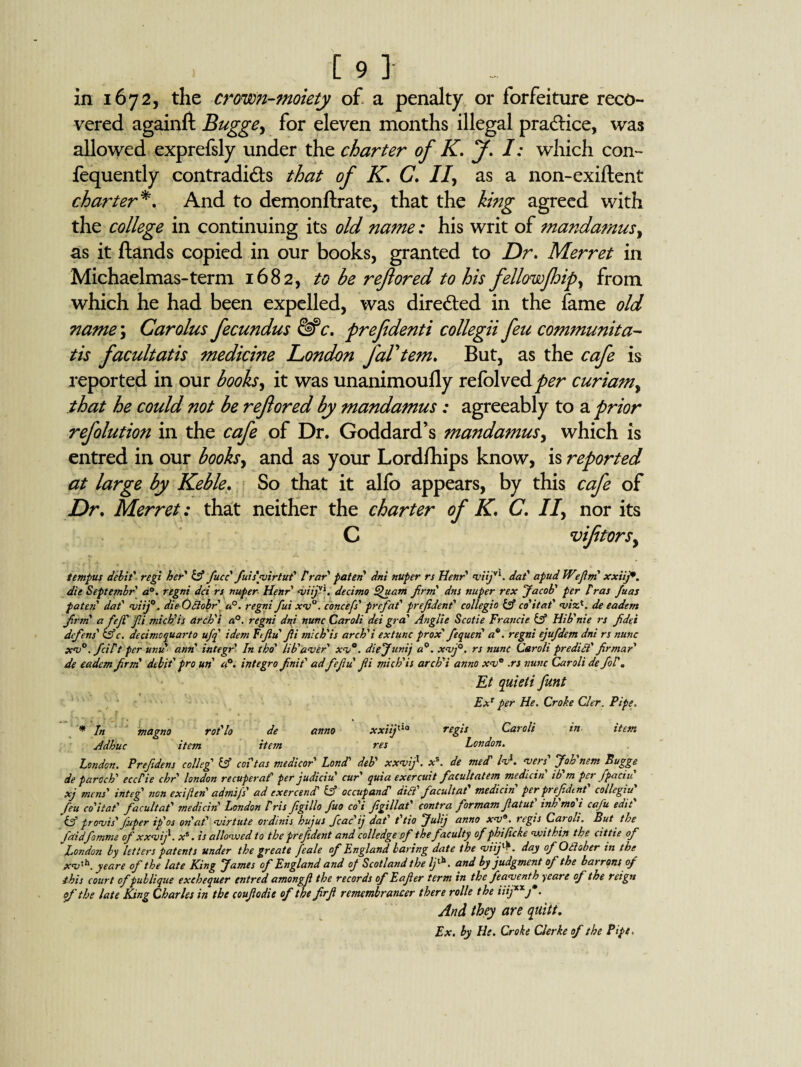 [ 9 ]
in 1672, the crown-moiety of a penalty or forfeiture reco-
vered againſt Bugge, for eleven months illegal practice, was
allowed expreſsly under the charter of K. J. I: which con-
ſequently contradicts that of K. C. II, as a non-exiſtent
charter*. And to demonſtrate, that the king agreed with
the college in continuing its old name: his writ of mandamus,
as it ſtands copied in our books, granted to Dr. Merret in
Michaelmas-term 1682, to be reſtored to his fellowſhip, from
which he had been expelled, was directed in the ſame old
name; Carolus ſecundus &c. preſidenti collegii ſeu communita-
tis facultatis medicine London ſal'tem. But, as the caſe is
reported in our books, it was unanimouſly reſolved per curiam,
that he could not be reſtored by mandamus: agreeably to a prior
reſolution in the caſe of Dr. Goddard's mandamus, which is
entred in our books, and as your Lordſhips know, is reported
at large by Keble. So that it alſo appears, by this caſe of
Dr. Merret: that neither the charter of K. C. II, nor its
C viſitors,
tempus debit' regi her' & ſucc' ſuis' virtut' l'rar' paten' dni nuper rs Henr' viijvi. dat' apud Weſtm' xxiij°.
die Septembr' a°. regni dci rs nuper Henr' viijvi. decimo Quam firm' dns nuper rex Jacob' per l'ras ſuas
paten' dat' viij°. die Octobr' a°. regni ſui xv°. conceſſ' prefat' preſident' collegio & co'itat' vixt. de eadem
firm' a feſt' ſti mich'is arch'i a°. regni dni nunc Caroli dei gra' Anglie Scotie Francie & Hib'nie rs fidei
defens' &c. decimoquarto uſq' idem Feſtu' ſti mich'is arch'i extunc prox' ſequen' a°. regni ejuſdem dni rs nunc
xv°. ſcil't per unu' ann' integr' In tho' lib'aver' xv°. die Junij a°. xvj°. rs nunc Caroli predict' firmar'
de eadem firm' debit' pro un' a°. integro finit' ad feſtu' ſti mich'is arch'i anno xv° .rs nunc Caroli de ſol'.
Et quieti ſunt
Exr per He. Croke Cler. Pipe.
* In magno rot'lo de anno xxiijtio regis Caroli in item
Adhuc item item res London.
London. Preſidens colleg' & coi'tas medicor' Lond' deb' xxvijl. xs. de med' lvl. vers' Joh'nem Bugge
de paroch' eccl'ie chr' london recuperat' per judiciu' cur' quia exercuit facultatem medicin' ib'm per ſpaciu'
xj mens' integ' non exiſten' admiſſ' ad exercend' & occupand' dict' facultat' medicin' per preſident' collegiu'
ſeu co'itat' facultat' medicin' London l'ris ſigillo ſuo co'i ſigillat' contra formam ſtatut' inh'mo'i caſu edit'
& provis' ſuper ip'os on'at' virtute ordinis hujus ſcac'ij dat' t'tio Julij anno xv°. regis Caroli. But the
ſaid ſomme of xxvijl. xs. is allowed to the preſident and colledge of the faculty of phiſicke within the cittie of
London by letters patents under the greate ſeale of England baring date the viijth. day of October in the
xvth. yeare of the late King James of England and of Scotland the ljth. and by judgment of the barrons of
this court of publique exchequer entred amongſt the records of Eaſter term in the ſeaventh yeare of the reign
of the late King Charles in the couſtodie of the firſt remembrancer there rolle the iiijxxj°.
And they are quitt.
Ex. by He. Croke Clerke of the Pipe.